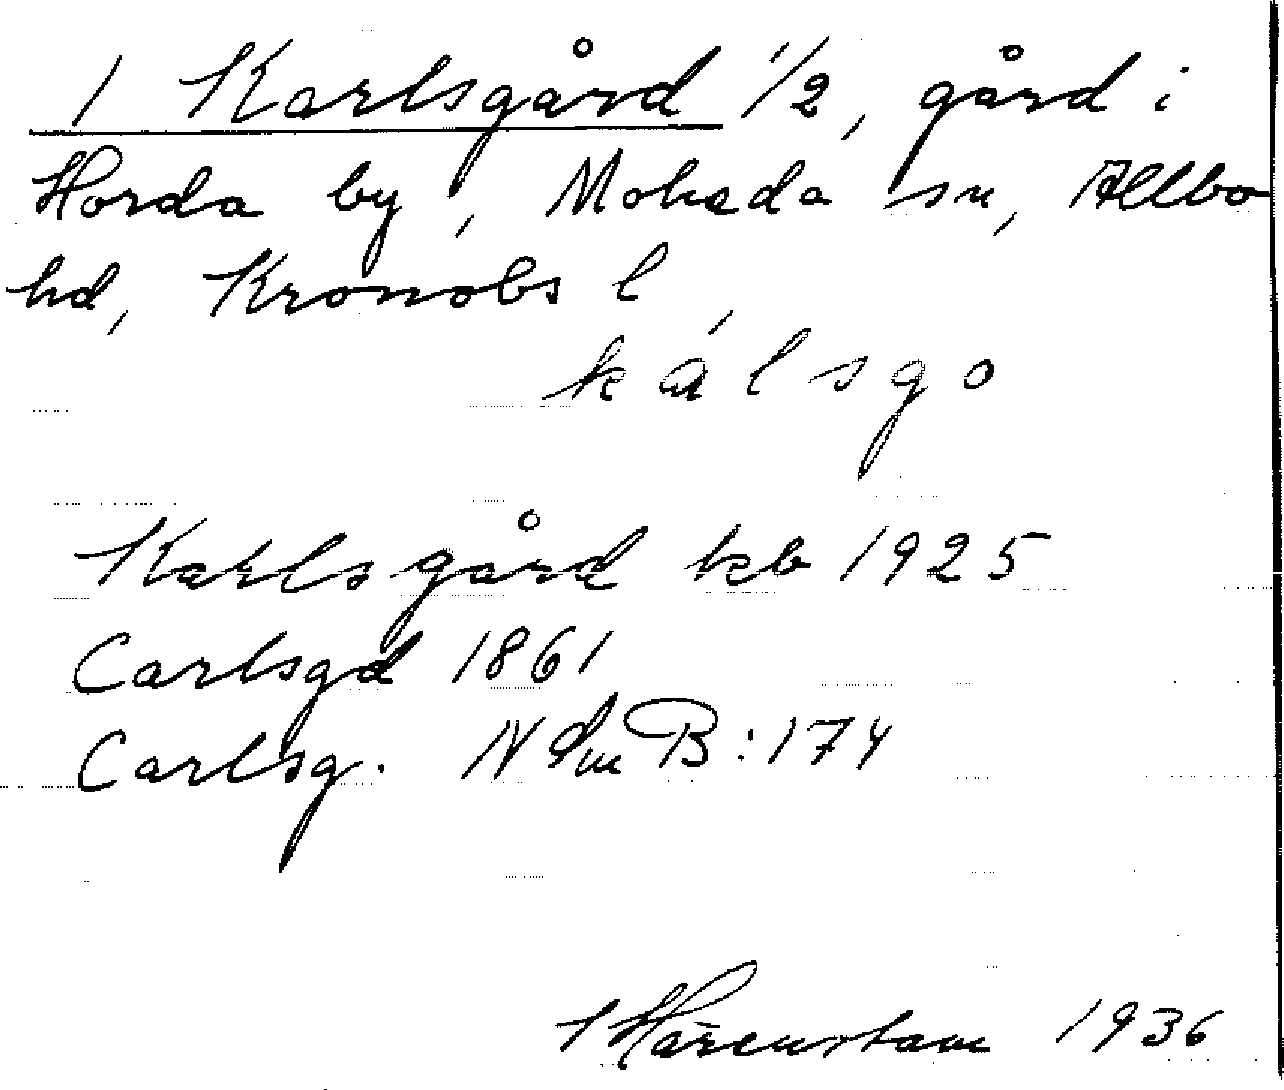 1 Karlsgård 1/2, gård i
Horda by, Moheda sn, Allbo
hd, Kronobs l,
kálsgo
Karlsgård kb 1925
Carlsgd 1861
Carlsg. N dm B:174
Härenstam 1936